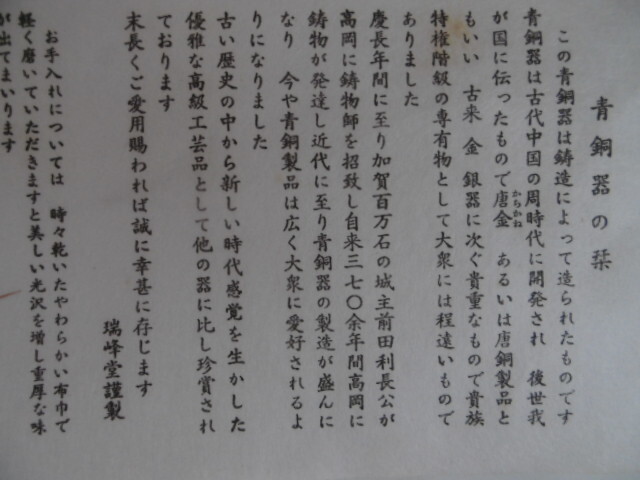 青銅器の栞
この青銅器は鋳造によって造られたものです
青銅器は古代中国の周時代に開発され 後世我
が国に伝ったもので唐金 あるいは唐銅製品と
からかね
もいい 古来 金 銀器に次ぐ貴重なもので貴族
特権階級の専有物として大衆には程遠いもので
ありました
慶長年間に至り加賀百万石の城主前田利長公が
高岡に鋳物師を招致し自来三七〇余年間高岡に
鋳物が発達し近代に至り青銅器の製造が盛んに
なり 今や青銅製品は広く大衆に愛好されるよ
りになりました
古い歴史の中から新しい時代感覚を生かした
優雅な高級工芸品として他の器に比し珍賞され
ております
末長くご愛用賜われば誠に幸甚に存じます
瑞峰堂謹製
お手入れについては 時々乾いたやわらかい布巾で
軽く磨いていただきますと美しい光沢を増し重厚な味
が出てまいります